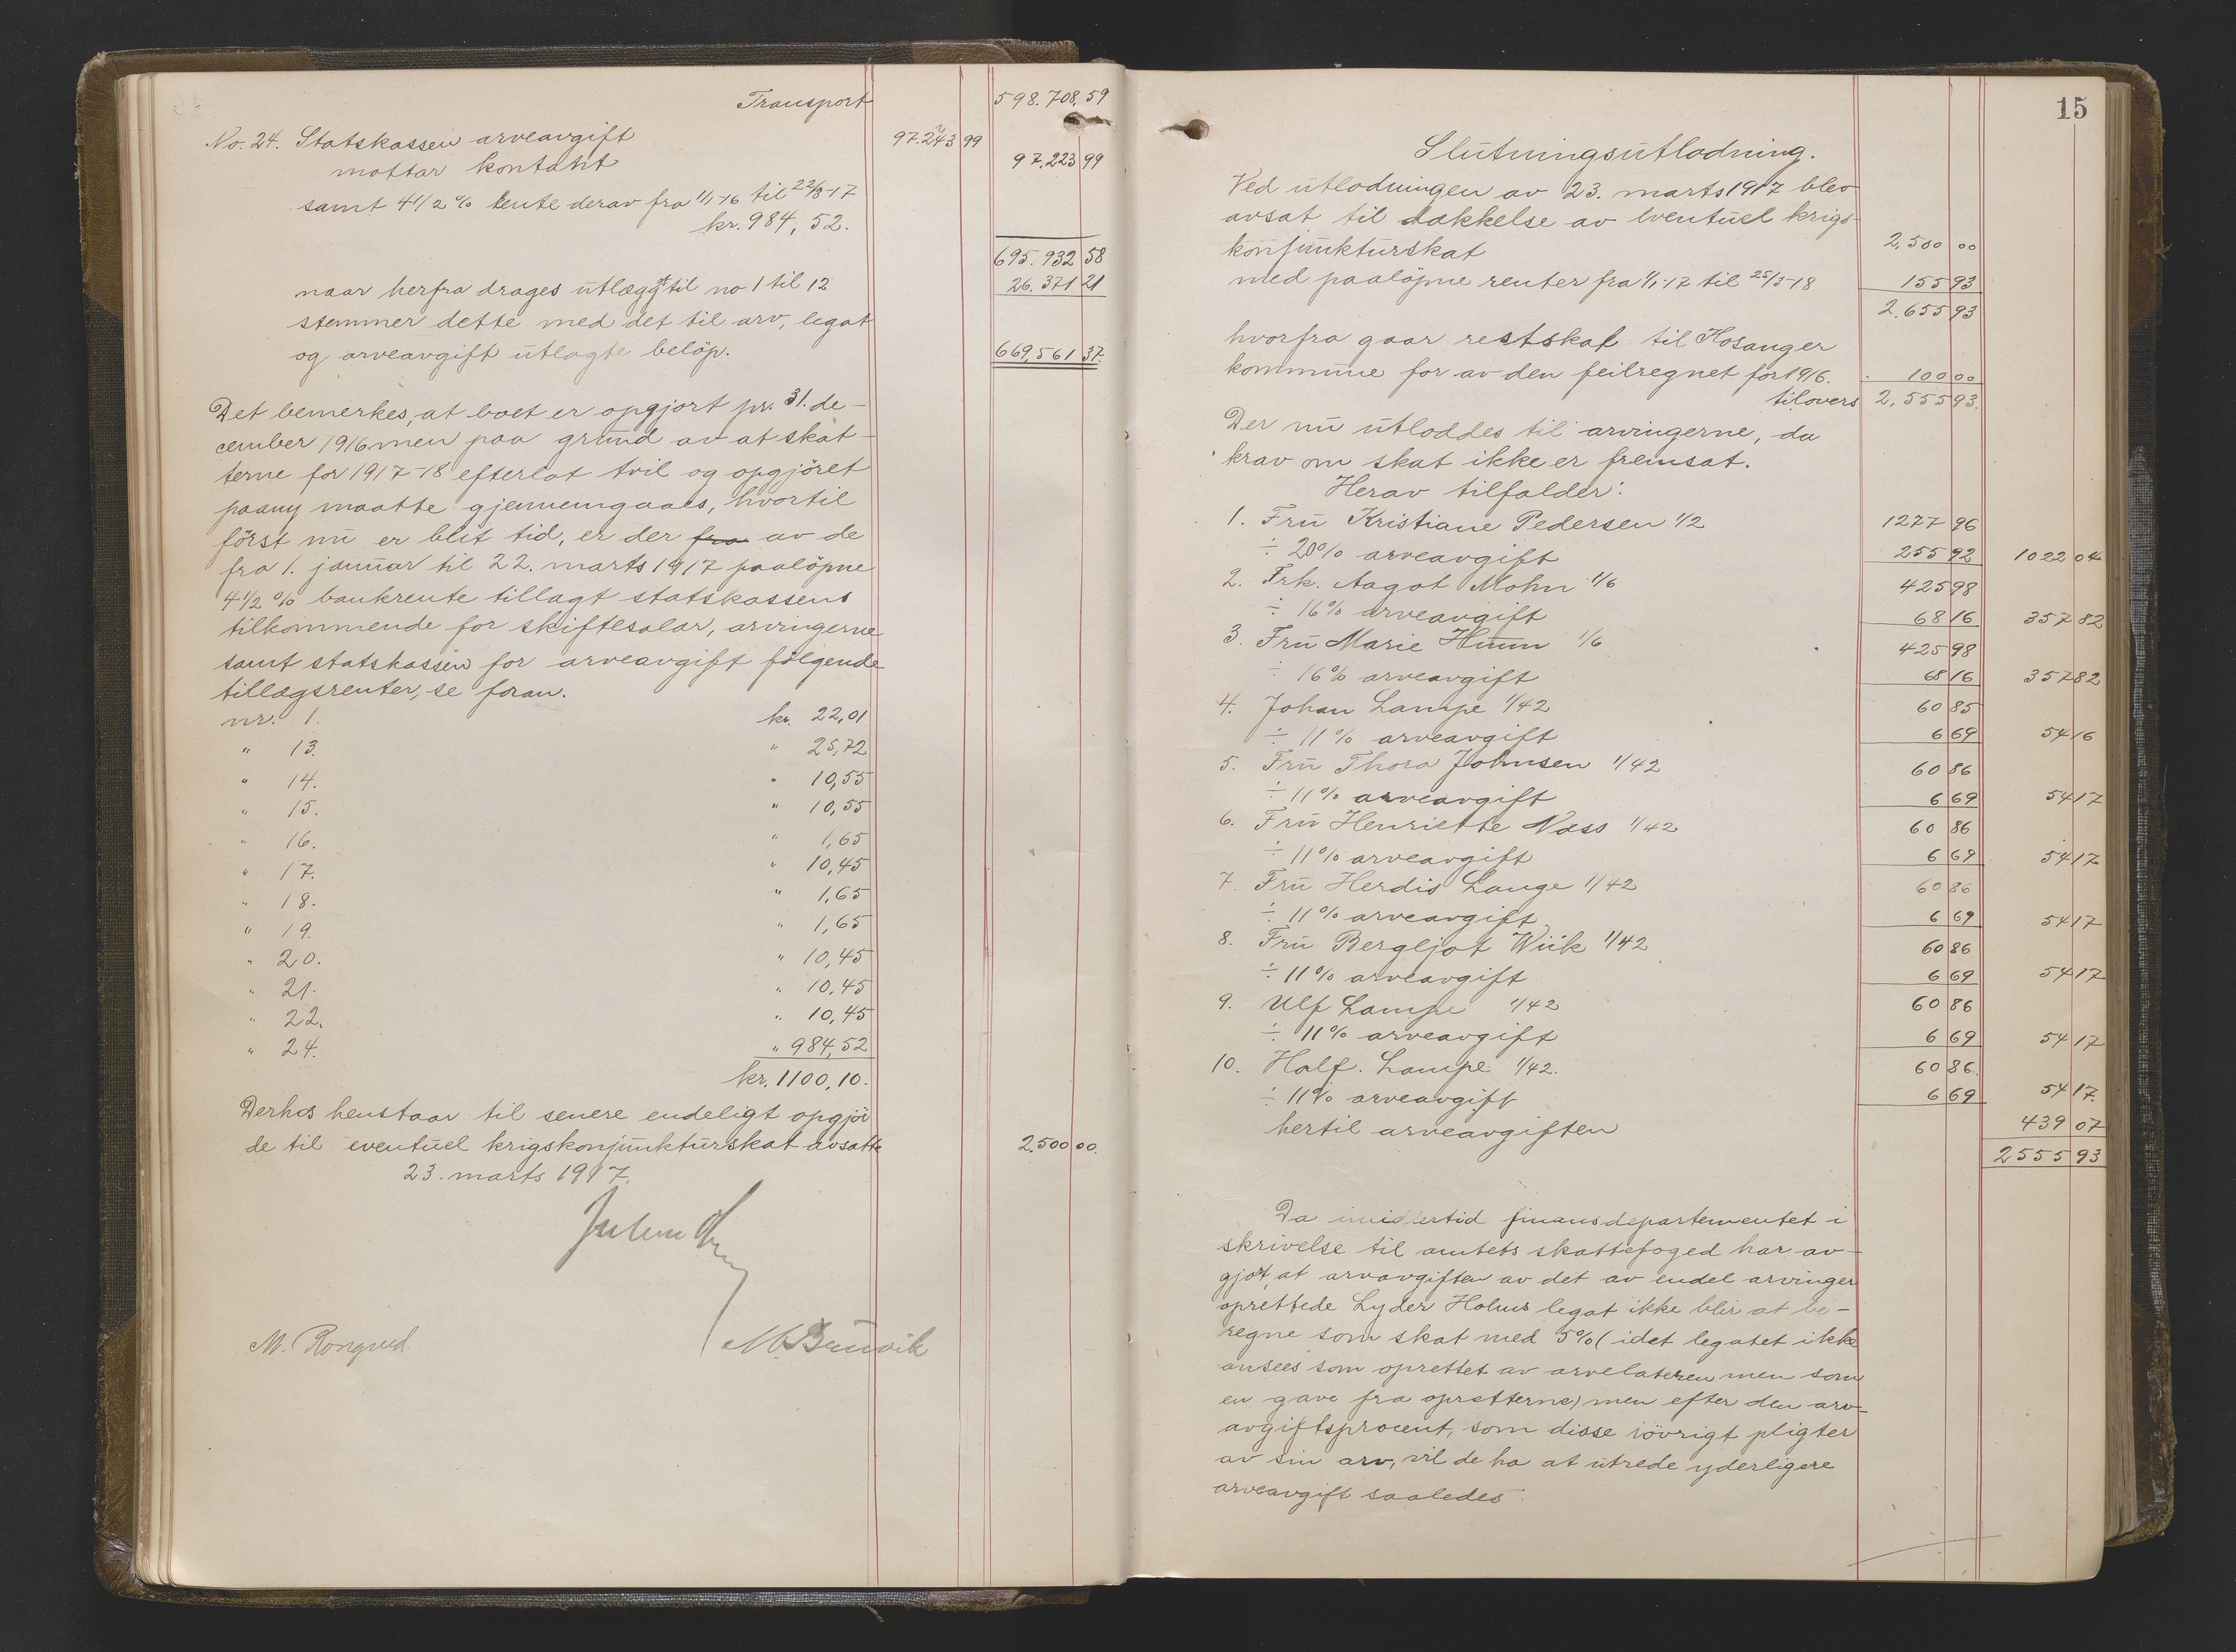 Transport 598.708,59
No. 24. Statskassen arveavgift 97.243 99
mottar kontant 97.223 99
samt 4 1/2 % rente derav fra 1/1-16 til 22/3-17
kr. 984,52.
695.932 58
naar herfra drages utlægget til no 1 til 12 26.371 21
stemmer dette med det til arv, legat
og arveavgift utlagte belöp. 669,561 37.
Det bemerkes, at boet er opgjort pr. 31. de-
cember 1916 men paa grund av at skat-
terne for 1917-18 efterlot tvil og opgjöret
paany maatte gjennemgaaes, hvortil
först nu er blit tid, er der fra av de
fra 1. januar til 22. marts 1917 paalöpne
4 1/2 % bankrente tillagt statskassens
tilkommende for skiftesalær, arvingerne
samt statskassen for arveavgift fölgende
tillægsrenter, se foran.
nr. 1. kr. 22,01
" 13. " 25,72
" 14. " 10,55
" 15. " 10,55
" 16. " 1,65
" 17. " 10,45
" 18. " 1,65
" 19. " 1,65
" 20. " 10,45
" 21. " 10,45
" 22. " 10,45
" 24. " 984,52
kr. 1100,10.
Derhos henstaar til senere endeligt opgjör
de til eventuel krigskonjunkturskat avsatte 2.500 00.
23. marts 1917.
M. Rongved M. Brudvik
15
Slutningsutlodning.
Ved utlodningen av 23. marts 1917 blev
avsat til dækkelse av eventuel krigs-
konjunkturskat 2,500 00
med paalöpne renter fra 1/1-17 til 25/5-18 155 93
2.655 93
hvorfra gaar restskat til Hosanger
kommune for av den feilregnet for 1916. 100 00
tilovers 2,555 93.
Der nu utloddes til arvingerne, da
krav om skat ikke er fremsat.
Herav tilfalder:
1. Fru Kristiane Pedersen 1/2 1277 96
÷ 20% arveavgift 255 92 1022 04
2. Frk. Aagot Mohn 1/6 425 98
÷ 16% arveavgift 68 16 357 82
3. Fru Marie Humm 1/6 425 98
÷ 16% arveavgift 68 16 357 82
4. Johan Lampe 1/42 60 85
÷ 11% arveavgift 6 69 54 16
5. Fru Thora Johnsen 1/42 60 86
÷ 11% arveavgift 6 69 54 17
6. Fru Henriette Næss 1/42 60 86
÷ 11% arveavgift 6 69 54 17
7. Fru Herdis Lange 1/42 60 86
÷ 11% arveavgift 6 69 54 17
8. Fru Bergljot Wiik 1/42 60 86
÷ 11% arveavgift 6 69 54 17
9. Ulf Lampe 1/42 60 86
÷ 11% arveavgift 6 69 54 17
10. Half. Lampe 1/42. 60 86.
÷ 11% arveavgift 6 69 54 17.
hertil arveavgiften 439 07
2555 93
Da imidlertid finansdepartementet i
skrivelse til amtets skattefoged har av-
gjort, at arvavgiften av det av endel arvinger
oprettede Lyder Holms legat ikke blir at be-
regne som skat med 5% (idet legatet ikke
ansees som oprettet av arvelateren men som
en gave fra opretterne) men efter den arv-
avgiftsprocent, som disse iövrigt pligter
av sin arv, vil de ha at utrede yderligere
arveavgift saaledes: